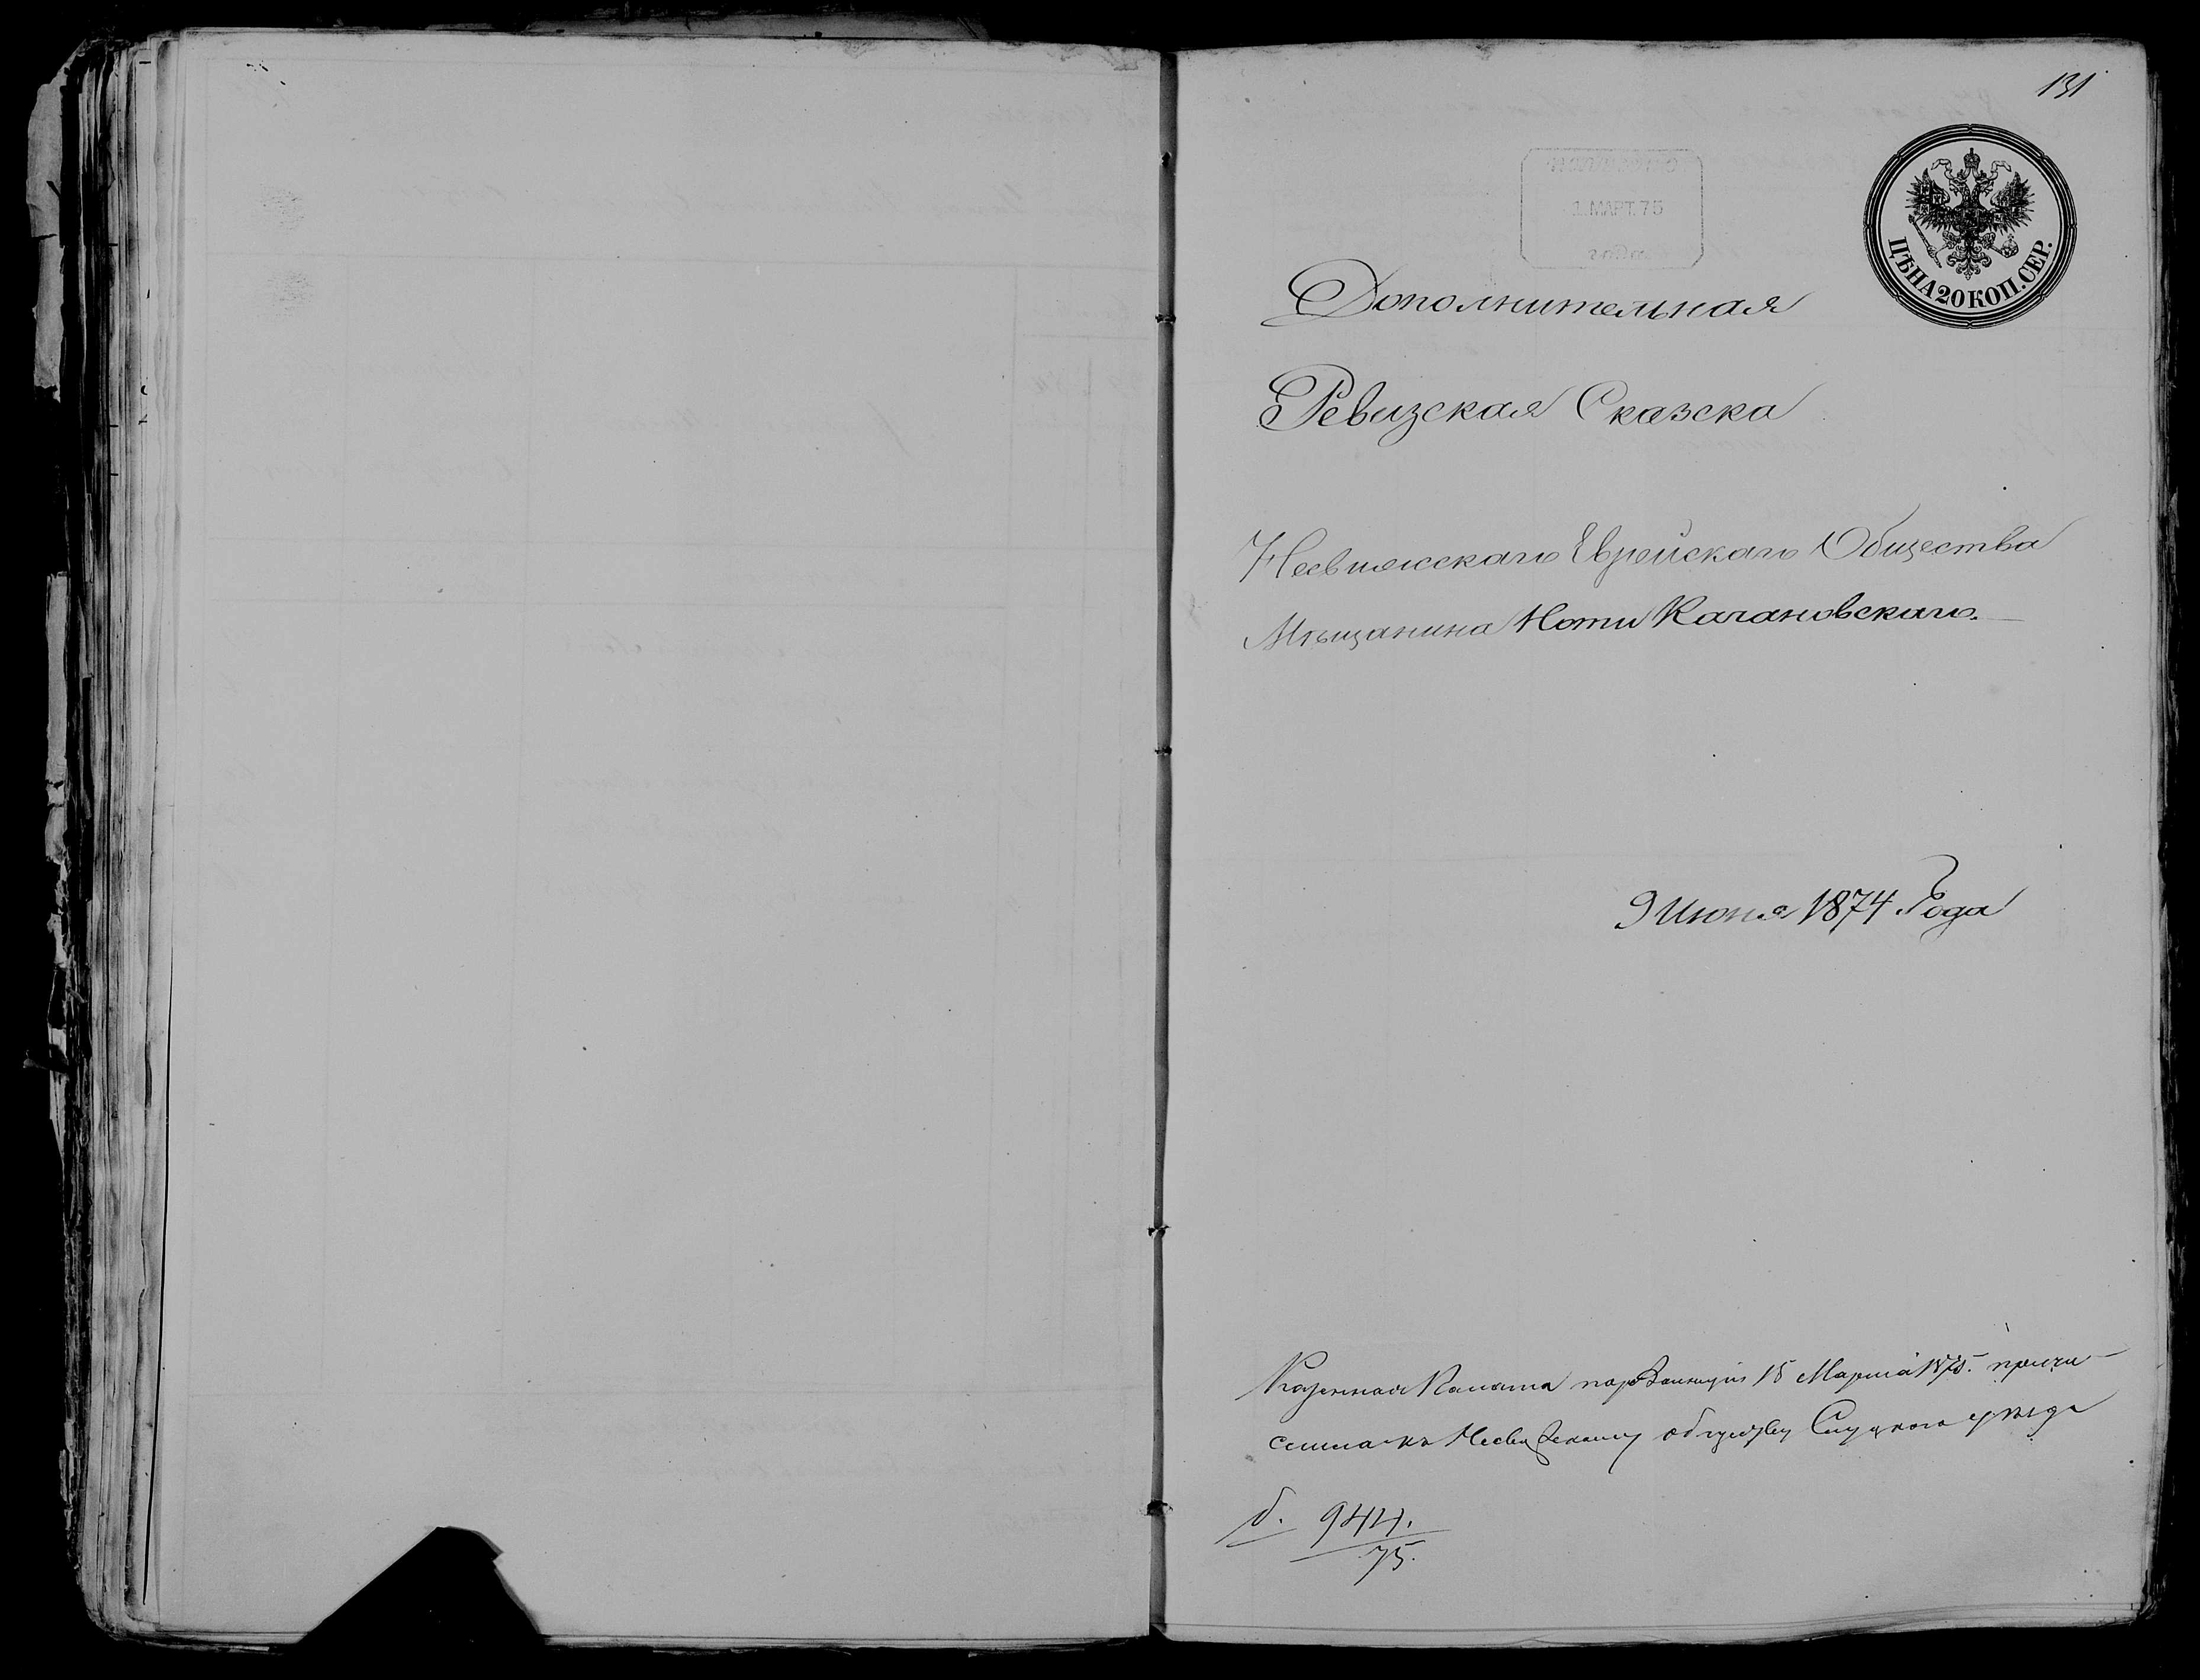 131
1 МАРТ. 75
ЦѢНА 20 КОП. СЕР.
Дополнительная
Ревизская Сказска
Несвижскаго Еврейскаго Общества
Мѣщанина Ноти Качановскаго.
9 Июня 1874 Года
Казенная Палата 15 Марта 1875. причи-
слила къ Несвижскому обществу Слуцкого уѣзда
б. 944.
75.